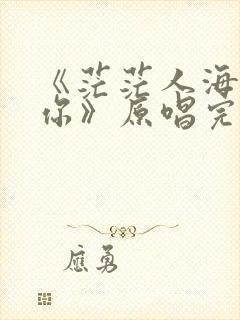 《茫茫人海
你》原唱完
应勇